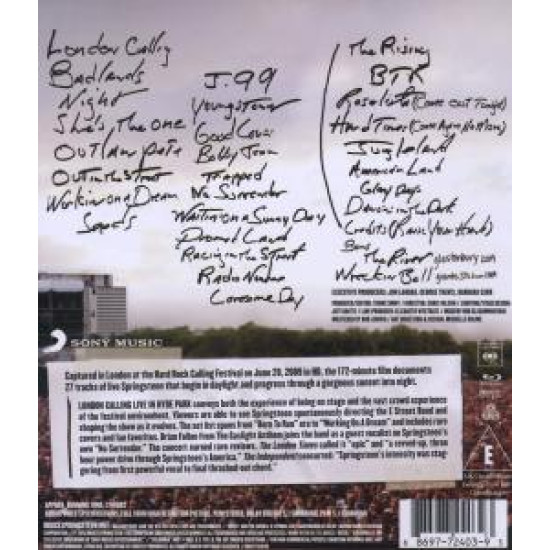 London Calling
Badlands
Night
She's The One
Outlaw Pete
Out in the Street
Working on a Dream
Seeds
J.99
Youngstown
Good Lovin
Bobby Jean
Trapped
No Surrender
Waitin on a Sunny Day
Promised Land
Racing in the Street
Radio Nowhere
Lonesome Day
The Rising
BTR
Rosalita (Come Out Tonight)
Hard Times (Come Again No More)
Jungleland
American Land
Glory Days
Dancing in the Dark
Credits (Raise Your Hand)
Bonus
The River glastonbury 2009
Wrecking Ball giants stadium 2009
SONY MUSIC
Captured in London at the Hard Rock Calling Festival on June 28, 2009 in HD, the 172-minute film documents
27 tracks of live Springsteen that begin in daylight and progress through a gorgeous sunset into night.
LONDON CALLING LIVE IN HYDE PARK conveys both the experience of being on stage and the vast crowd experience
of the festival environment. Viewers are able to see Springsteen spontaneously directing the E Street Band and
shaping the show as it evolves. The set list spans from "Born To Run" era to "Working On A Dream" and includes rare
covers and fan favorites. Brian Fallon from The Gaslight Anthem joins the band as a guest vocalist on Springsteen's
own "No Surrender." The concert earned rave reviews. The London Times called it "epic" and "a revved-up, three
hour power drive through Springsteen's America." The Independent concurred: "Springsteen's intensity was stag-
gering from first powerful vocal to final thrashed-out chord."
E
6 8697-72403-9 5